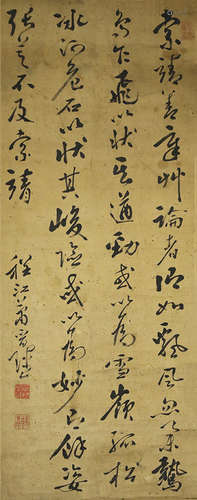 索靖善章艸論者謂如飄風忽举鷙
鳥乍飛以状其遒勁或以為雪嶺孤松
冰河危石以状其峻險或以為妙有餘姿
張芝不及索靖
程江蕭